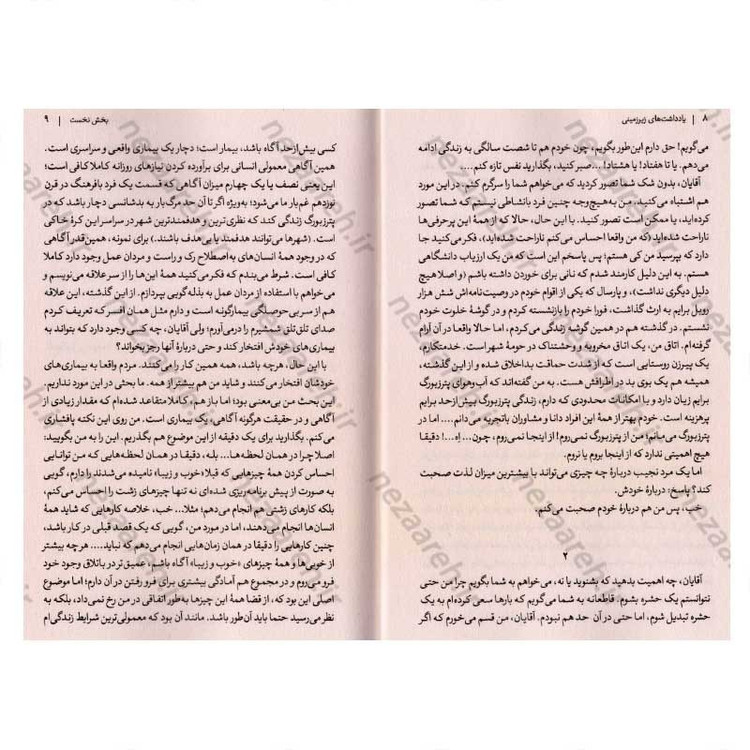 ۸ | یادداشت‌های زیرزمینی
می‌گویم! حق دارم این‌طور بگویم، چون خودم هم تا شصت سالگی به زندگی ادامه
می‌دهم. یا تا هفتاد! یا هشتاد! ...صبر کنید، بگذارید نفس تازه کنم...
آقایان، بدون شک شما تصور کردید که می‌خواهم شما را سرگرم کنم. در این مورد
هم اشتباه می‌کنید. من به‌هیچ‌وجه چنین فرد بانشاطی نیستم که شما تصور
کرده‌اید، یا ممکن است تصور کنید. با این حال، حالا که از همهٔ این پرحرفی‌ها
ناراحت شده‌اید (که من واقعا احساس می‌کنم ناراحت شده‌اید)، فکر می‌کنید جا
دارد که بپرسید من کی هستم؛ پس پاسخم این است که من یک ارزیاب دانشگاهی
هستم. به این دلیل کارمند شدم که نانی برای خوردن داشته باشم (و اصلا هیچ
دلیل دیگری نداشت)، و پارسال که یکی از اقوام خودم در وصیت‌نامه‌اش شش هزار
روبل برایم به ارث گذاشت، فورا خودم را بازنشسته کردم و در گوشهٔ خلوت خودم
نشستم. در گذشته هم در همین گوشه زندگی می‌کردم، اما حالا واقعا در آن آرام
گرفته‌ام. اتاق من، یک اتاق مخروبه و وحشتناک در حومهٔ شهر است. خدمتکارم،
یک پیرزن روستایی است که از شدت حماقت بداخلاق شده، و گذشته از این،
همیشه هم یک بوی بد در اطرافش هست. به من گفته‌اند که آب‌وهوای پترزبورگ
برایم زیان دارد و با امکانات محدودی که دارم، زندگی پترزبورگ بیش‌ازحد برایم
پرهزینه است. خودم بهتر از همهٔ این افراد دانا و مشاوران باتجربه می‌دانم.... اما در
پترزبورگ می‌مانم؛ من از پترزبورگ نمی‌روم! از اینجا نمی‌روم، چون... اه...! دقیقا
هیچ اهمیتی ندارد که از اینجا بروم یا نروم.
اما یک مرد نجیب دربارهٔ چه چیزی می‌تواند با بیشترین میزان لذت صحبت
کند؟ پاسخ: دربارهٔ خودش.
خب، پس من هم دربارهٔ خودم صحبت می‌کنم.
۲
آقایان، چه اهمیت بدهید که بشنوید یا نه، می‌خواهم به شما بگویم چرا من حتی
نتوانستم یک حشره بشوم. قاطعانه به شما می‌گویم که بارها سعی کرده‌ام به یک
حشره تبدیل شوم. اما حتی در آن حد هم نبودم. آقایان، من قسم می‌خورم که اگر
بخش نخست | ۹
کسی بیش‌ازحد آگاه باشد، بیمار است؛ دچار یک بیماری واقعی و سراسری است.
همین آگاهی معمولی انسانی برای برآورده کردن نیازهای روزانه کاملا کافی است؛
این یعنی نصف یا یک چهارم میزان آگاهی که قسمت یک فرد بافرهنگ در قرن
نوزدهم غم‌بار ما می‌شود؛ به‌ویژه اگر تا آن حد مرگ‌بار به بدشانسی دچار باشد که در
پترزبورگ زندگی کند که نظری‌ترین و هدفمندترین شهر در سراسر این کرهٔ خاکی
است. (شهرها می‌توانند هدفمند یا بی‌هدف باشند.) برای نمونه، همین‌قدر آگاهی
که در وجود همهٔ انسان‌های به‌اصطلاح رک و راست و مردان عمل وجود دارد کاملا
کافی است. شرط می‌بندم که فکر می‌کنید همهٔ این‌ها را از سر علاقه می‌نویسم و
می‌خواهم با استفاده از مردان عمل به بذله‌گویی بپردازم. از این گذشته، این
هم از سر بی‌حوصلگی بیمارگونه است و دارم مثل همان افسر که تعریف کردم
صدای تلق‌تلق شمشیرم را درمی‌آورم! ولی آقایان، چه کسی وجود دارد که بتواند به
بیماری‌های خودش افتخار کند و حتی دربارهٔ آنها رجز بخواند؟
با این حال، هرچه باشد، همه همین کار را می‌کنند. مردم واقعا به بیماری‌های
خودشان افتخار می‌کنند و شاید من هم بیشتر از همه. ما بحثی در این مورد نداریم.
این بحث من بی‌معنی بود؛ اما باز هم، کاملا متقاعد شده‌ام که مقدار زیادی از
آگاهی و در حقیقت هرگونه آگاهی، یک بیماری است. من روی این نکته پافشاری
می‌کنم. بگذارید برای یک دقیقه از این موضوع هم بگذریم. این را به من بگویید:
اصلا چرا در همان لحظه‌ها... بله، دقیقا در همان لحظه‌هایی که من توانایی
احساس کردن همهٔ چیزهایی که قبلا «خوب و زیبا» نامیده می‌شدند را دارم، گویی
به صورت از پیش برنامه‌ریزی شده‌ای نه تنها چیزهای زشت را احساس می‌کنم،
بلکه کارهای زشتی هم انجام می‌دهم؛ مثلا... خب، خلاصه کارهایی که شاید همهٔ
انسان‌ها انجام می‌دهند، اما در مورد من، گویی که یک قصد قبلی در کار باشد،
چنین کارهایی را دقیقا در همان زمان‌هایی انجام می‌دهم که نباید.... هرچه بیشتر
از خوبی‌ها و همهٔ چیزهای «خوب و زیبا» آگاه باشم، عمیق‌تر در باتلاق وجود خود
فرو می‌روم و در مجموع هم آمادگی بیشتری برای فرو رفتن در آن دارم؛ اما موضوع
اصلی این بود که، از قضا همهٔ این چیزها به‌طور اتفاقی در من رخ نمی‌داد، بلکه به
نظر می‌رسید حتما باید آن‌طور باشد. مانند آن بود که معمولی‌ترین شرایط زندگی‌ام